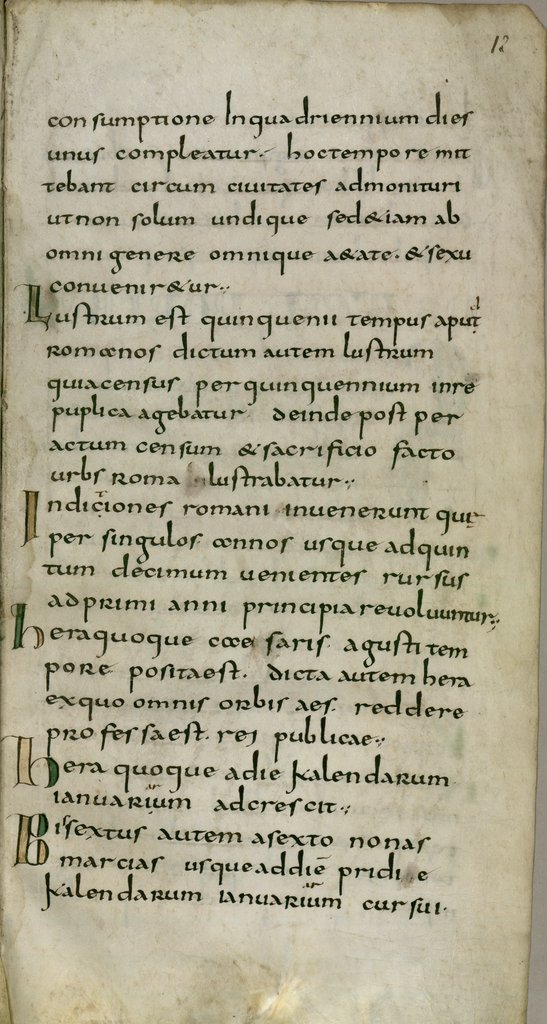 12
consumptione Inquadriennium dies
unus compleatur. hoctempore mit
tebant circum ciuitates admonituri
utnon solum undique sed&iam ab
omni genere omnique a&ate. &sexu
conuenir&ur.
Lustrum est quinquenii tempus aput
romanos dictum autem lustrum
quiacensus perquinquennium inre
puplica agebatur deinde post per
actum censum &sacrificio facto
urbs roma lustrabatur.
Indictiones romani inuenerunt quę
per singulos annos usque adquin
tum decimum uenientes rursus
adprimi anni principia reuoluuntur.
heraquoque caesaris agusti tem
pore positaest. dicta autem hera
exquo omnis orbis aes reddere
professaest. rei publicae.
hera quoque adie kalendarum
ianuarium adcrescit.
Bisextus autem asexto nonas
marcias usque addiē pridie
kalendarum ianuarium cursui.